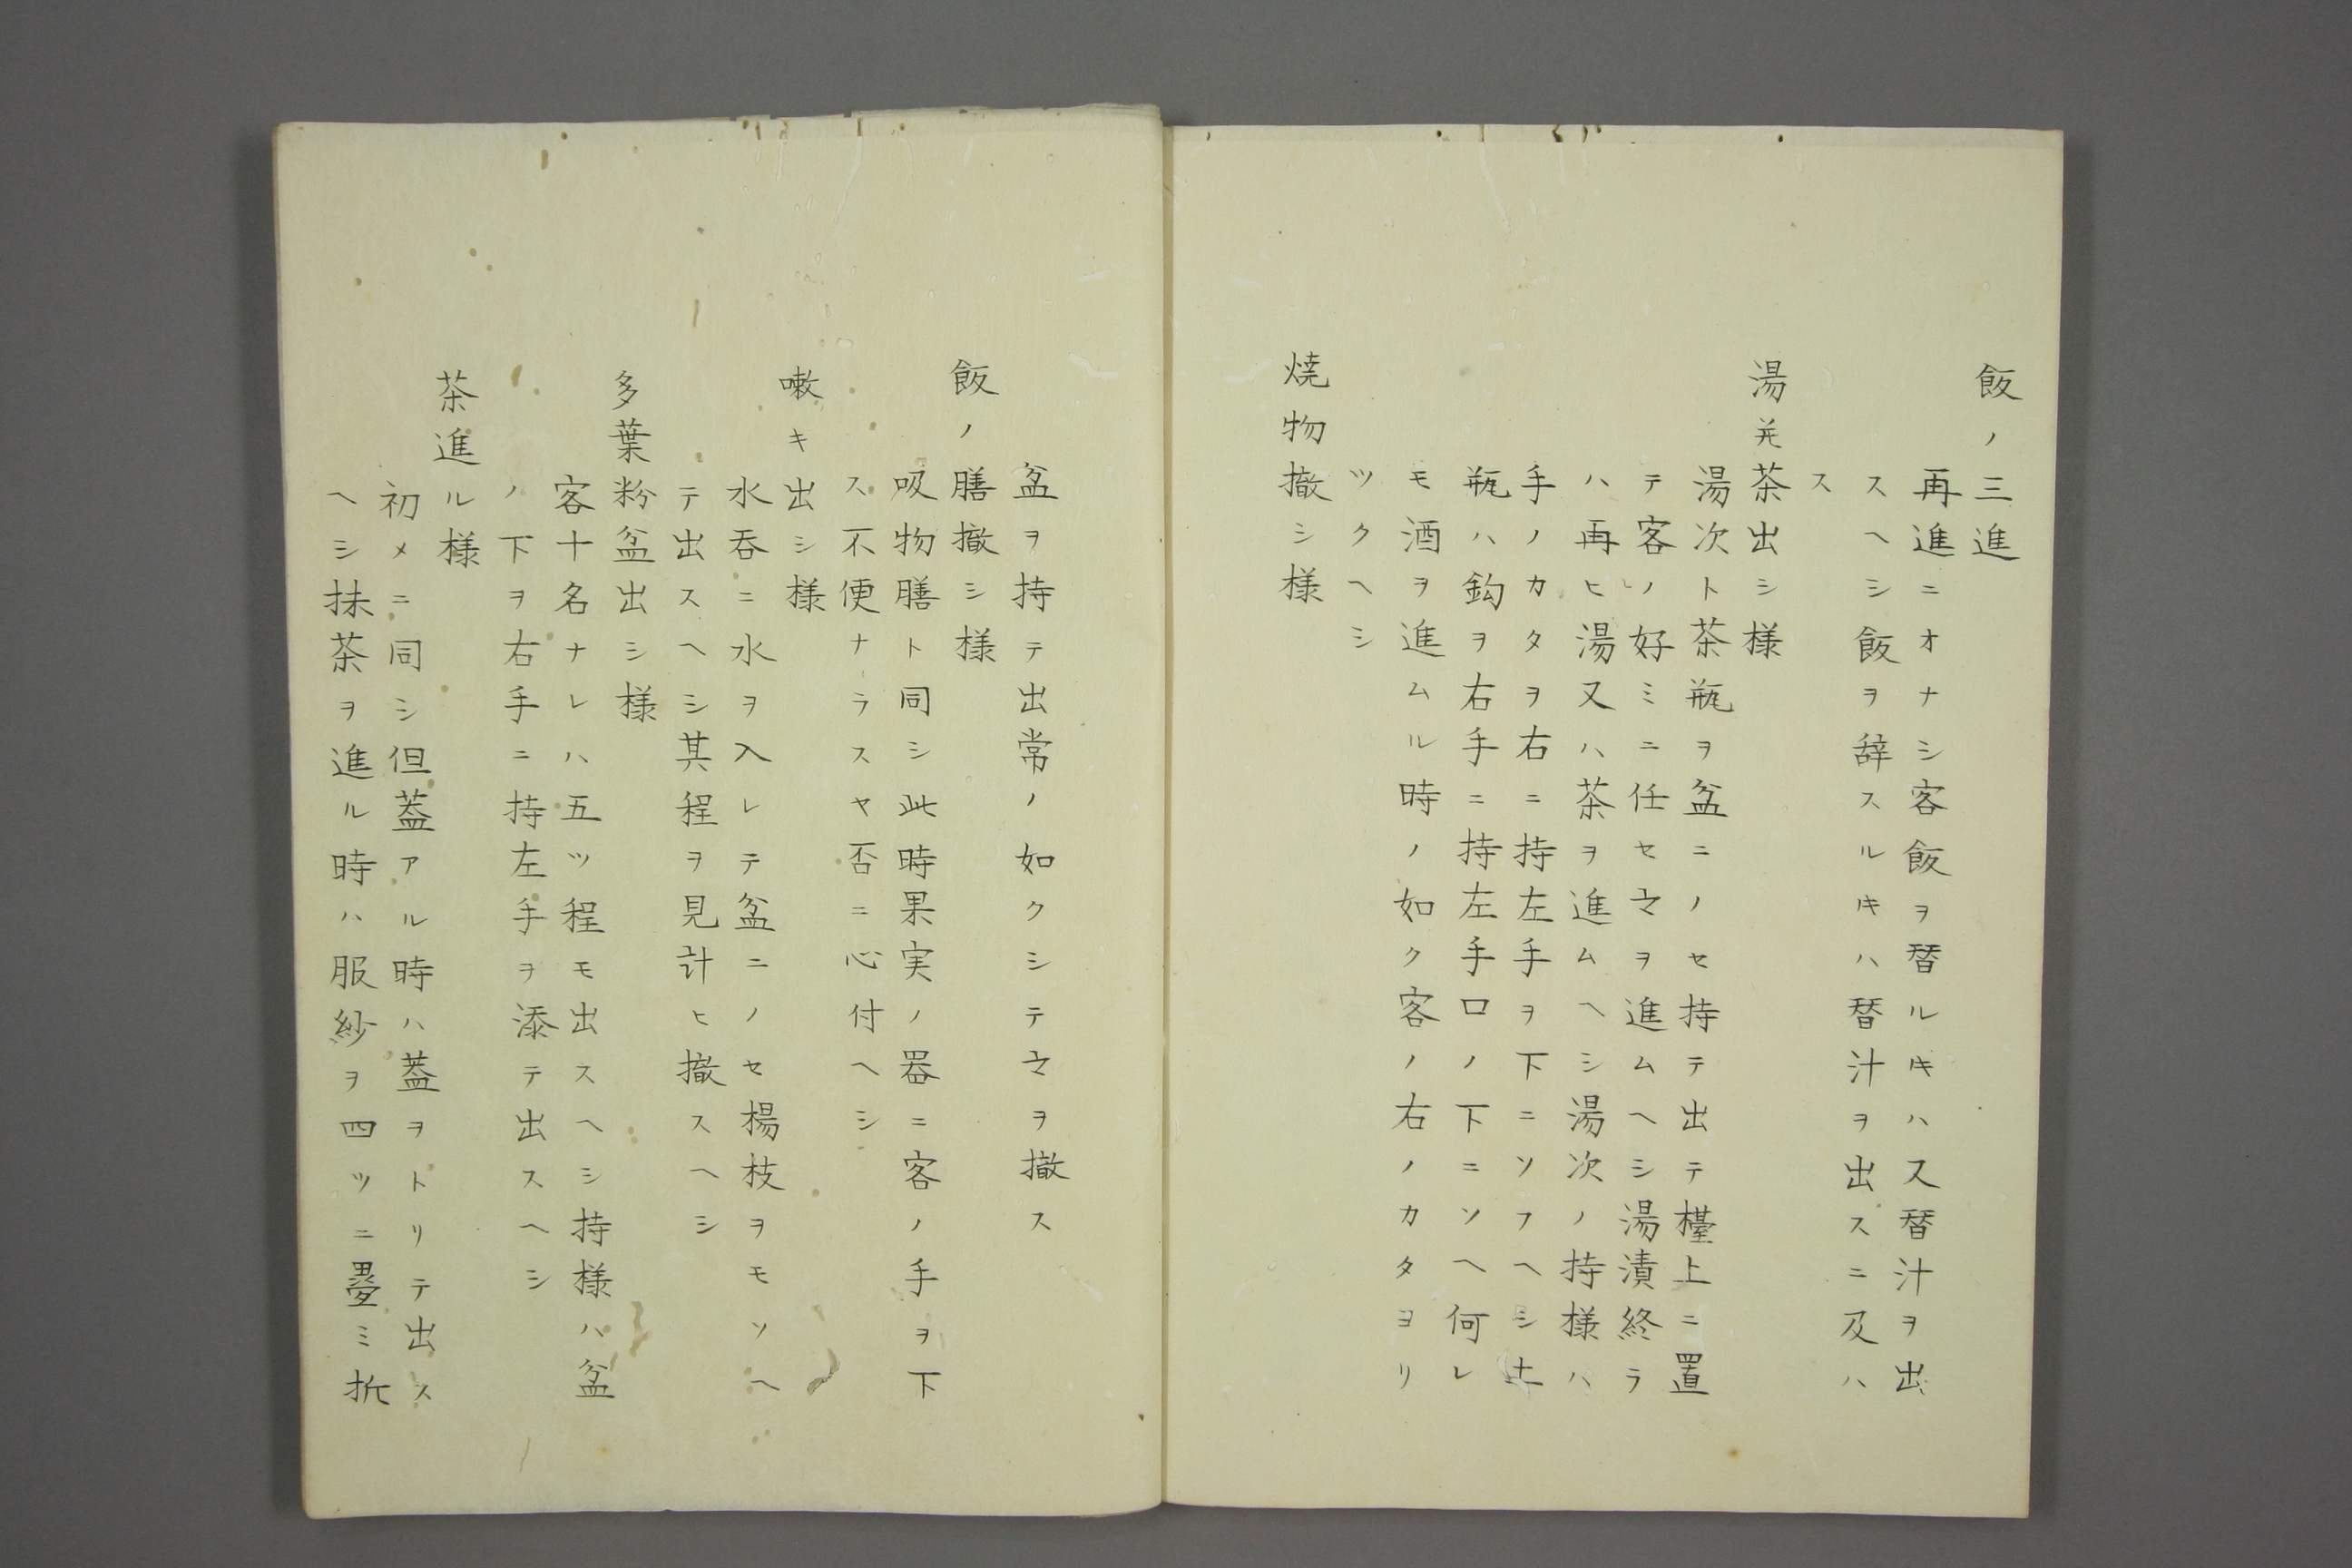 飯ノ三進
再進ニオナシ客飯ヲ替ルキハ又替汁ヲ出
スヘシ飯ヲ辞スルキハ替汁ヲ出スニ及ハ
ス
湯并茶出シ様
湯次ト茶瓶ヲ盆ニノセ持テ出テ檯上ニ置
テ客ノ好ミニ任セ之ヲ進ムヘシ湯漬終ラ
ハ再ヒ湯又ハ茶ヲ進ムヘシ湯次ノ持様ハ
手ノカタヲ右ニ持左手ヲ下ニソフヘシ土
瓶ハ鈎ヲ右手ニ持左手口ノ下ニソヘ何レ
モ酒ヲ進ムル時ノ如ク客ノ右ノカタヨリ
ツクヘシ
焼物撤シ様
盆ヲ持テ出常ノ如クシテ之ヲ撤ス
飯ノ膳撤シ様
吸物膳ト同シ此時果実ノ器ニ客ノ手ヲ下
ス不便ナラスヤ否ニ心付ヘシ
嗽キ出シ様
水呑ニ水ヲ入レテ盆ニノセ楊枝ヲモソヘ
テ出スヘシ其程ヲ見計ヒ撤スヘシ
多葉粉盆出シ様
客十名ナレハ五ツ程モ出スヘシ持様ハ盆
ノ下ヲ右手ニ持左手ヲ添テ出スヘシ
茶進ル様
初メニ同シ但蓋アル時ハ蓋ヲトリテ出ス
ヘシ抹茶ヲ進ル時ハ服紗ヲ四ツニ疊ミ折